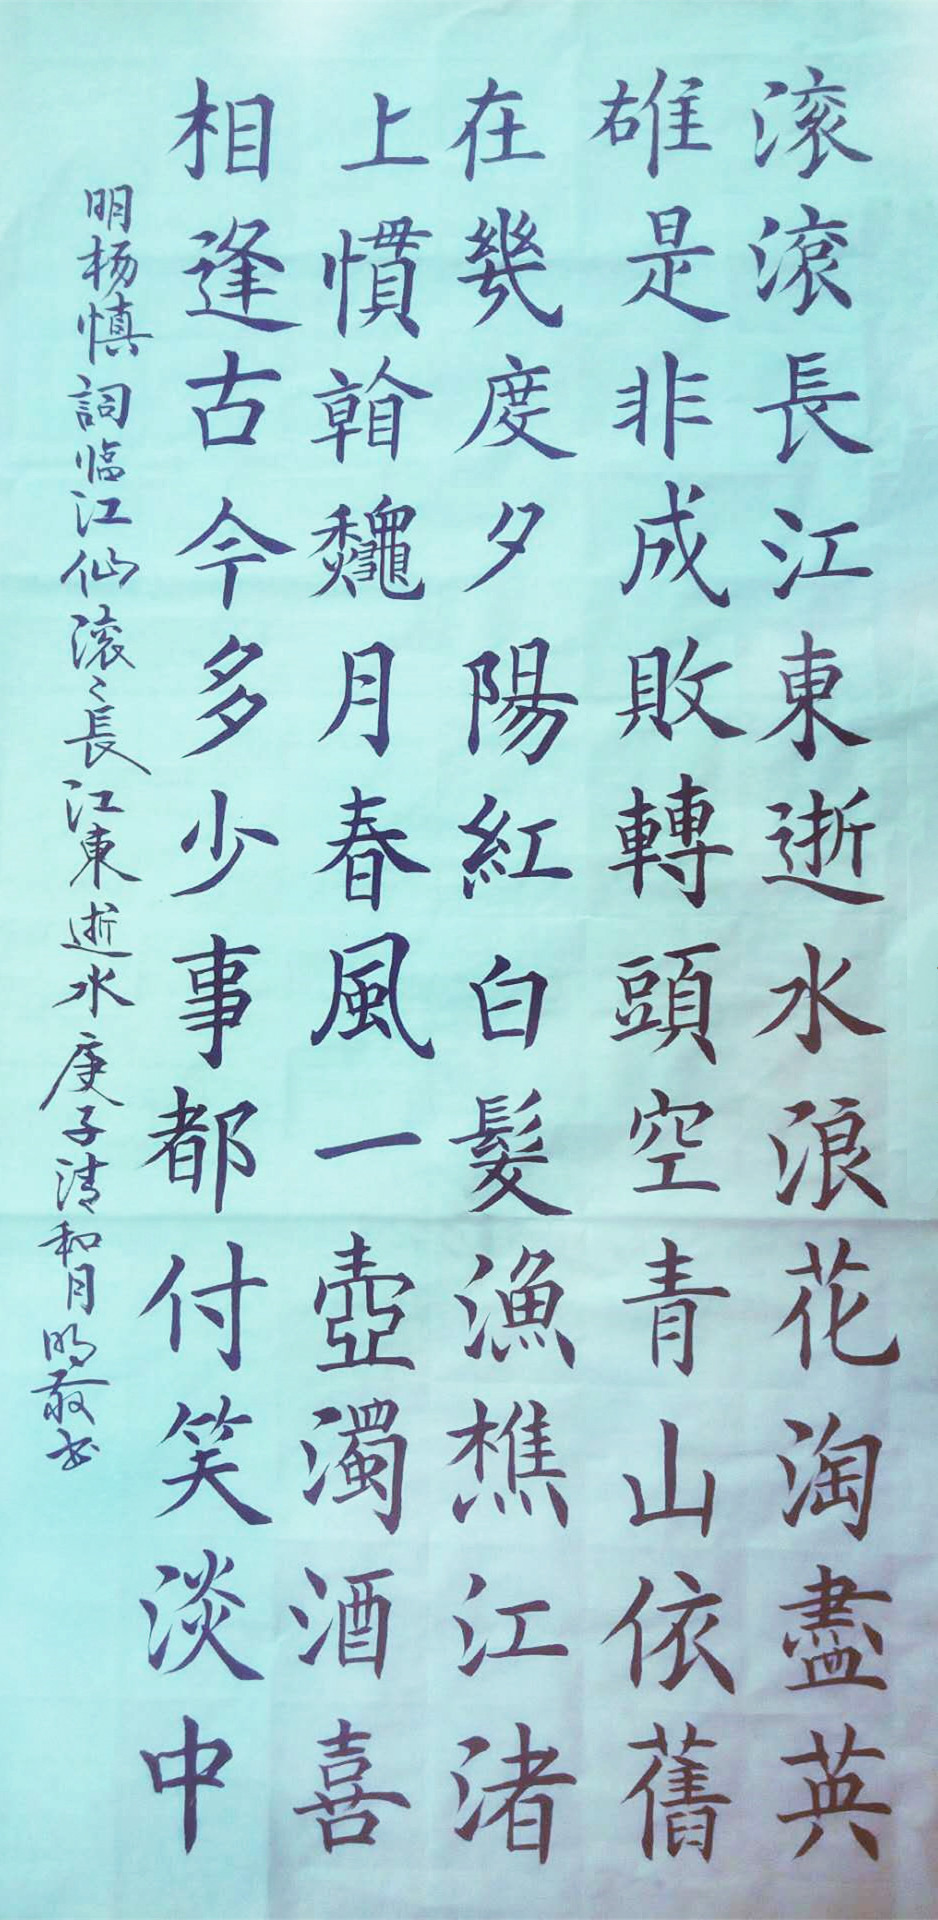 滚滾長江東逝水浪花淘盡英
雄是非成敗轉頭空青山依舊
在幾度夕陽紅白髮漁樵江渚
上慣看龝月春風一壺濁酒喜
相逢古今多少事都付笑淡中
明杨慎詞临江仙滚々長江東逝水 庚子清和月 书